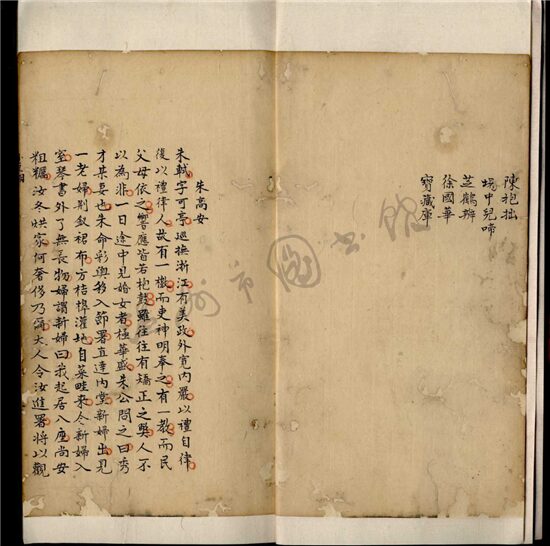 陳抱拙
塢中兒啼
芝鶴辦
徐國華
寶藏庫
朱高安
朱軾字可亭巡撫浙江有美政外寬内嚴以禮自律
後以禮律人故有一檄而吏神明奉之有一教而民
父母依之響應皆若桴鼓雖往往有矯正之獎人不
以為非一日途中見婚女者極華盛朱公問之曰秀
才某娶也朱命彩輿移入節署直達内堂新婦出見
一老婦荆釵裙布方桔槔灌地自菜畦來令新婦入
室琴書外了無長物婦謂新婦曰我起居八座尚安
粗糲汝冬烘家何奢侈乃爾大人令汝進署將以觀
市圖書館